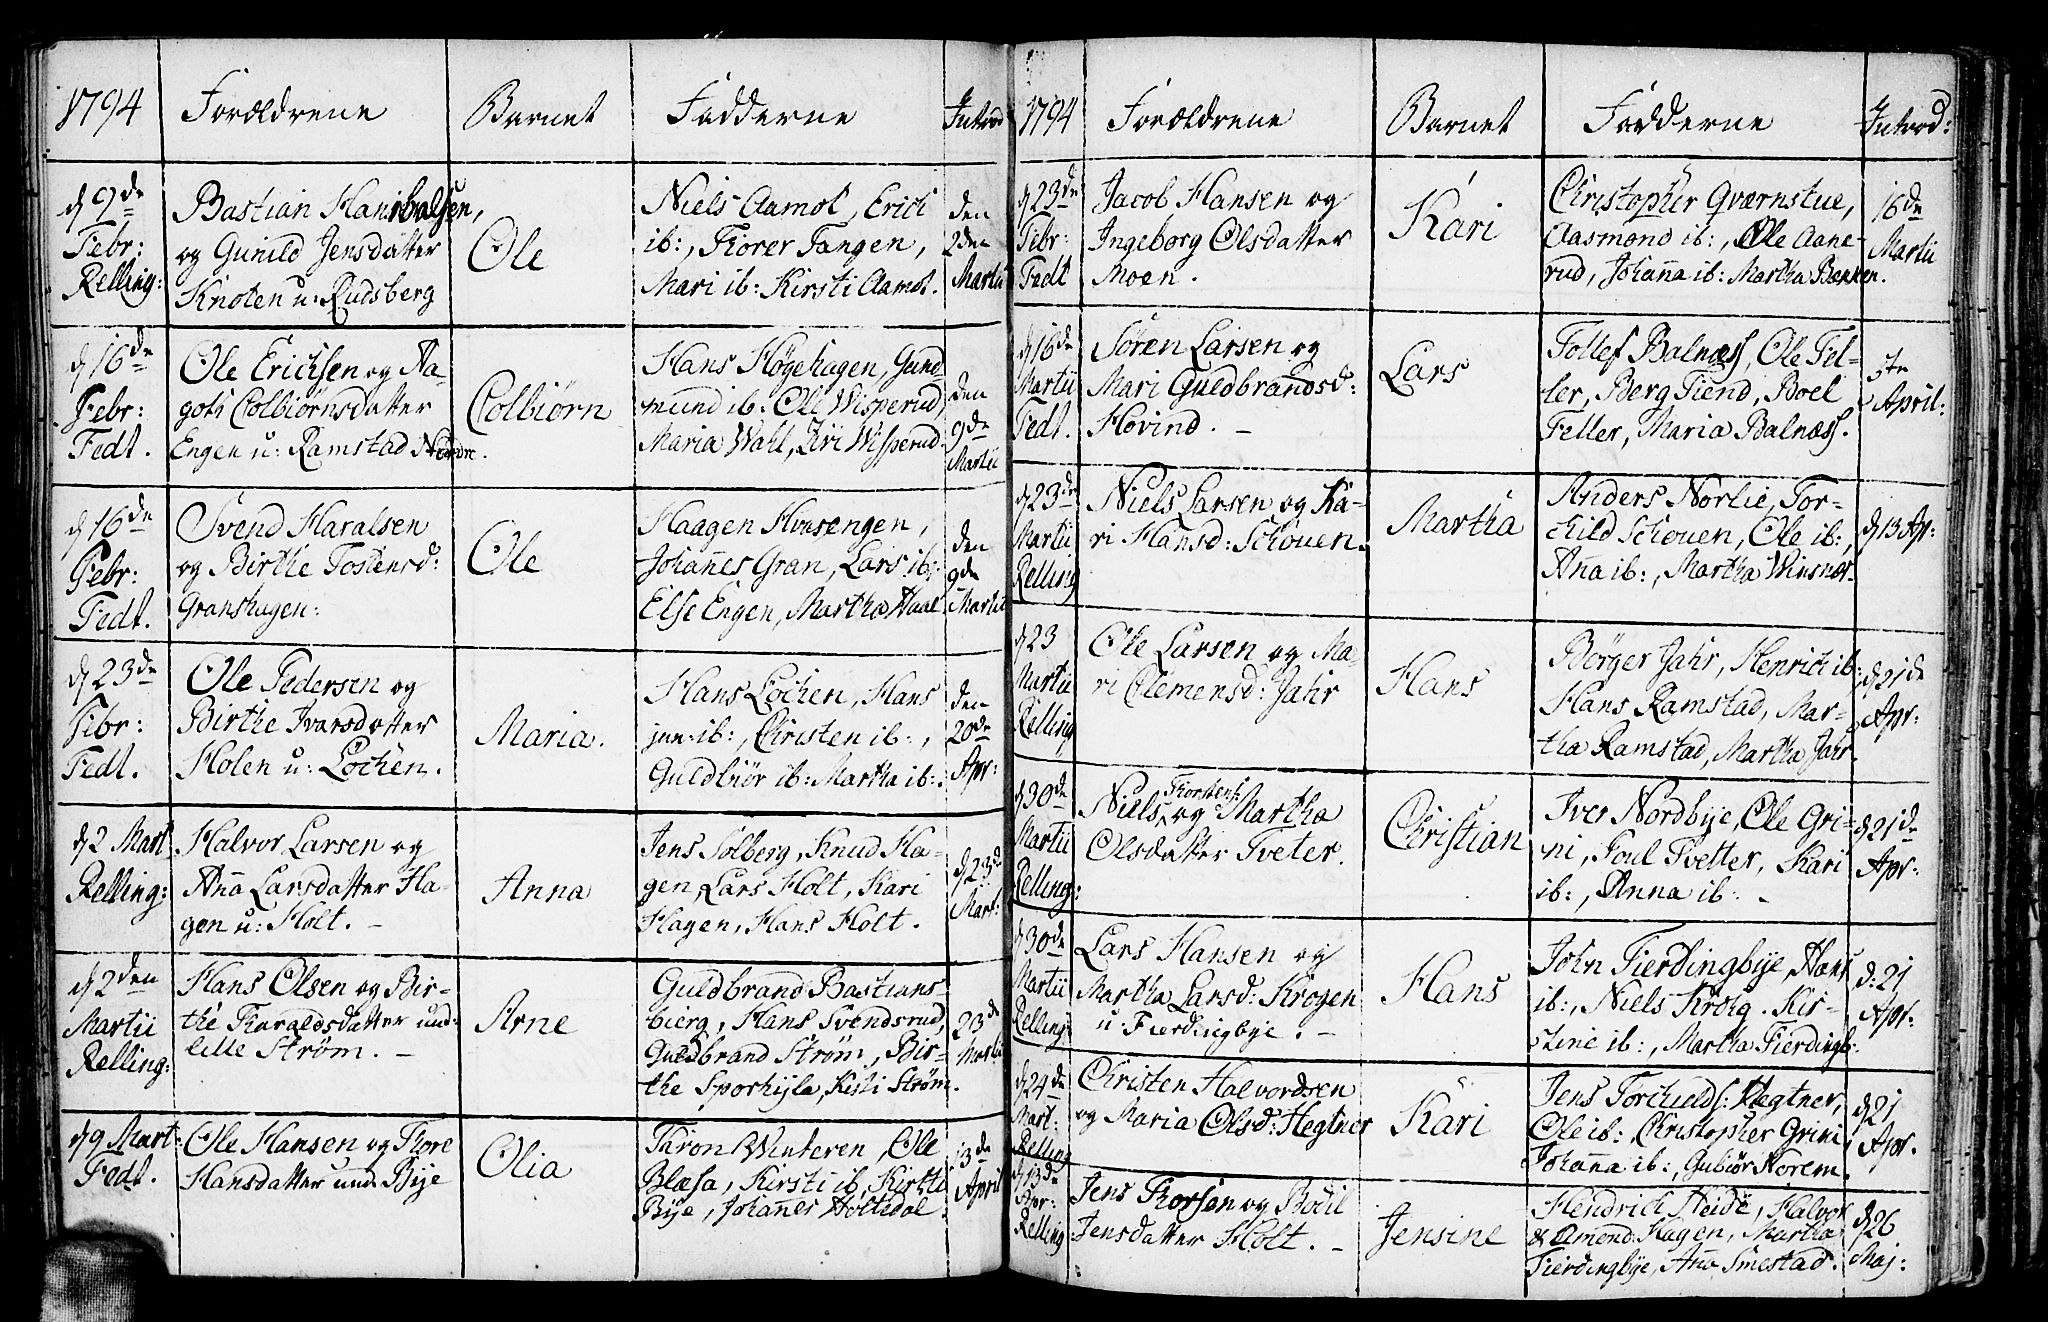 1794 Forældrene Barnet Fadderne Introd
d 9de Febr: Relling:
Bastian Hansbalsen,
og Gunild Jensdatter
Knoten u: Rudsberg
Ole
Niels Aamot, Erich
ib:, Torer Tangen,
Mari ib: Kirsti Aamot.
den 2den Martii
d 16de Febr: Fedt.
Ole Erichsen og Aa-
gots Colbiørnsdatter
Engen u: Ramstad Nordre.
Colbiørn
Hans Høgehagen, Gund
mund ib: Ole Wisperud,
Maria Wahl, Siri Wisperud.
den 9de Martii
d 16de Febr: Fedt.
Svend Haralsen
og Birthe Tostensd:
Granshagen:
Ole
Haagen Hvusengen,
Johannes Gran, Lars ib:
Else Engen, Martha Haal
den 9de Martii
d 23de Febr: Fedt.
Ole Pedersen og
Birthe Ivarsdatter
Holen u: Løchen.
Maria.
Hans Løchen, Hans
jun: ib:, Christen ib:,
Guldbiør ib: Martha ib:.
den 20de Apr:
d 2 Mart Relling:
Halvor Larsen og
Anna Larsdatter Ha-
gen u: Holt. -
Anna
Jens Solberg, Knud Ha-
gen, Lars Holt, Kari
Hagen, Hans Holt.
d 23de Mart:
d 2den Martii Relling:
Hans Olsen og Bir-
the Haraldsdatter und:
lille Strøm. -
Arne
Guldbrand Bastians-
bierg, Hans Svendsrud,
Guldbrand Strøm, Bir-
the Sporhijla, Kisti Strøm.
23de Martii
d 9 Mart: Fedt.
Ole Hansen og Thore
Hansdatter und: Bije
Olia
Taron Winteren, Ole
Blæsa, Kirsti ib, Kirsti
Bije, Johannes Holtedal.
13de April
1794 Forældrene Barnet Fadderne Introd:
d 23de Febr: Fedt
Jacob Hansen og
Ingeborg Olsdatter
Moen.
Kari
Christopher Qværnstue,
Aasmond ib:, Ole Aane-
rud, Johanna ib: Martha Bakken.
16de Martii
d 16de Martii Fedt.
Søren Larsen og
Mari Guldbrandsd:
Hovind. -
Lars
Tollef Balness, Ole Fel-
ler, Berg Fiend, Boel
Feller, Maria Balness.
5te April:
d 23de Martii Relling
Niels Larsen og Ka-
ri Hansd: Schouen.
Martha
Anders Norlie, Tor-
child Schouen, Ole ib:,
Anna ib:, Martha Winsnæs.
d 13 Apr:
d 23 Martii Relling
Ole Larsen og Ma-
ri Clemensd: Jahr
Hans
Børger Jahr, Henrich ib:,
Hans Ramstad, Mar-
tha Ramstad, Martha Jahr.
d 21de Apr:
d 30de Martii Relling:
Niels Thorstens: og Martha
Olsdatter Tveter.
Christian
Iver Nordbije, Ole Gri-
ni, Poul Tvetter, Kari
ib:, Anna ib: -
d 21de Apr:
d 30de Martii Relling
Lars Hansen og
Martha Larsd: Krogen
u: Fierdingbye. -
Hans
John Fierdingbije, Hans
ib:, Niels Krohg. Kir-
stine ib:, Martha Fierdingb:
d: 21 Apr:
d 24de Mart: Relling
Christen Halvordsen
og Maria Olsd: Hegtner
Kari
Jens Torchields: Hegtner,
Ole ib:, Christopher Grini
Johanna ib:, Gubiør Norem.
d 21 Apr.
d 13de Apr: Relling
Jens Thorsen og Bodil
Jensdatter Holt. -
Jensine
Hendrich Heide, Halvor
& Amond Hagen, Martha
Fierdingbije, Anna Smestad.
d 26 Maj: